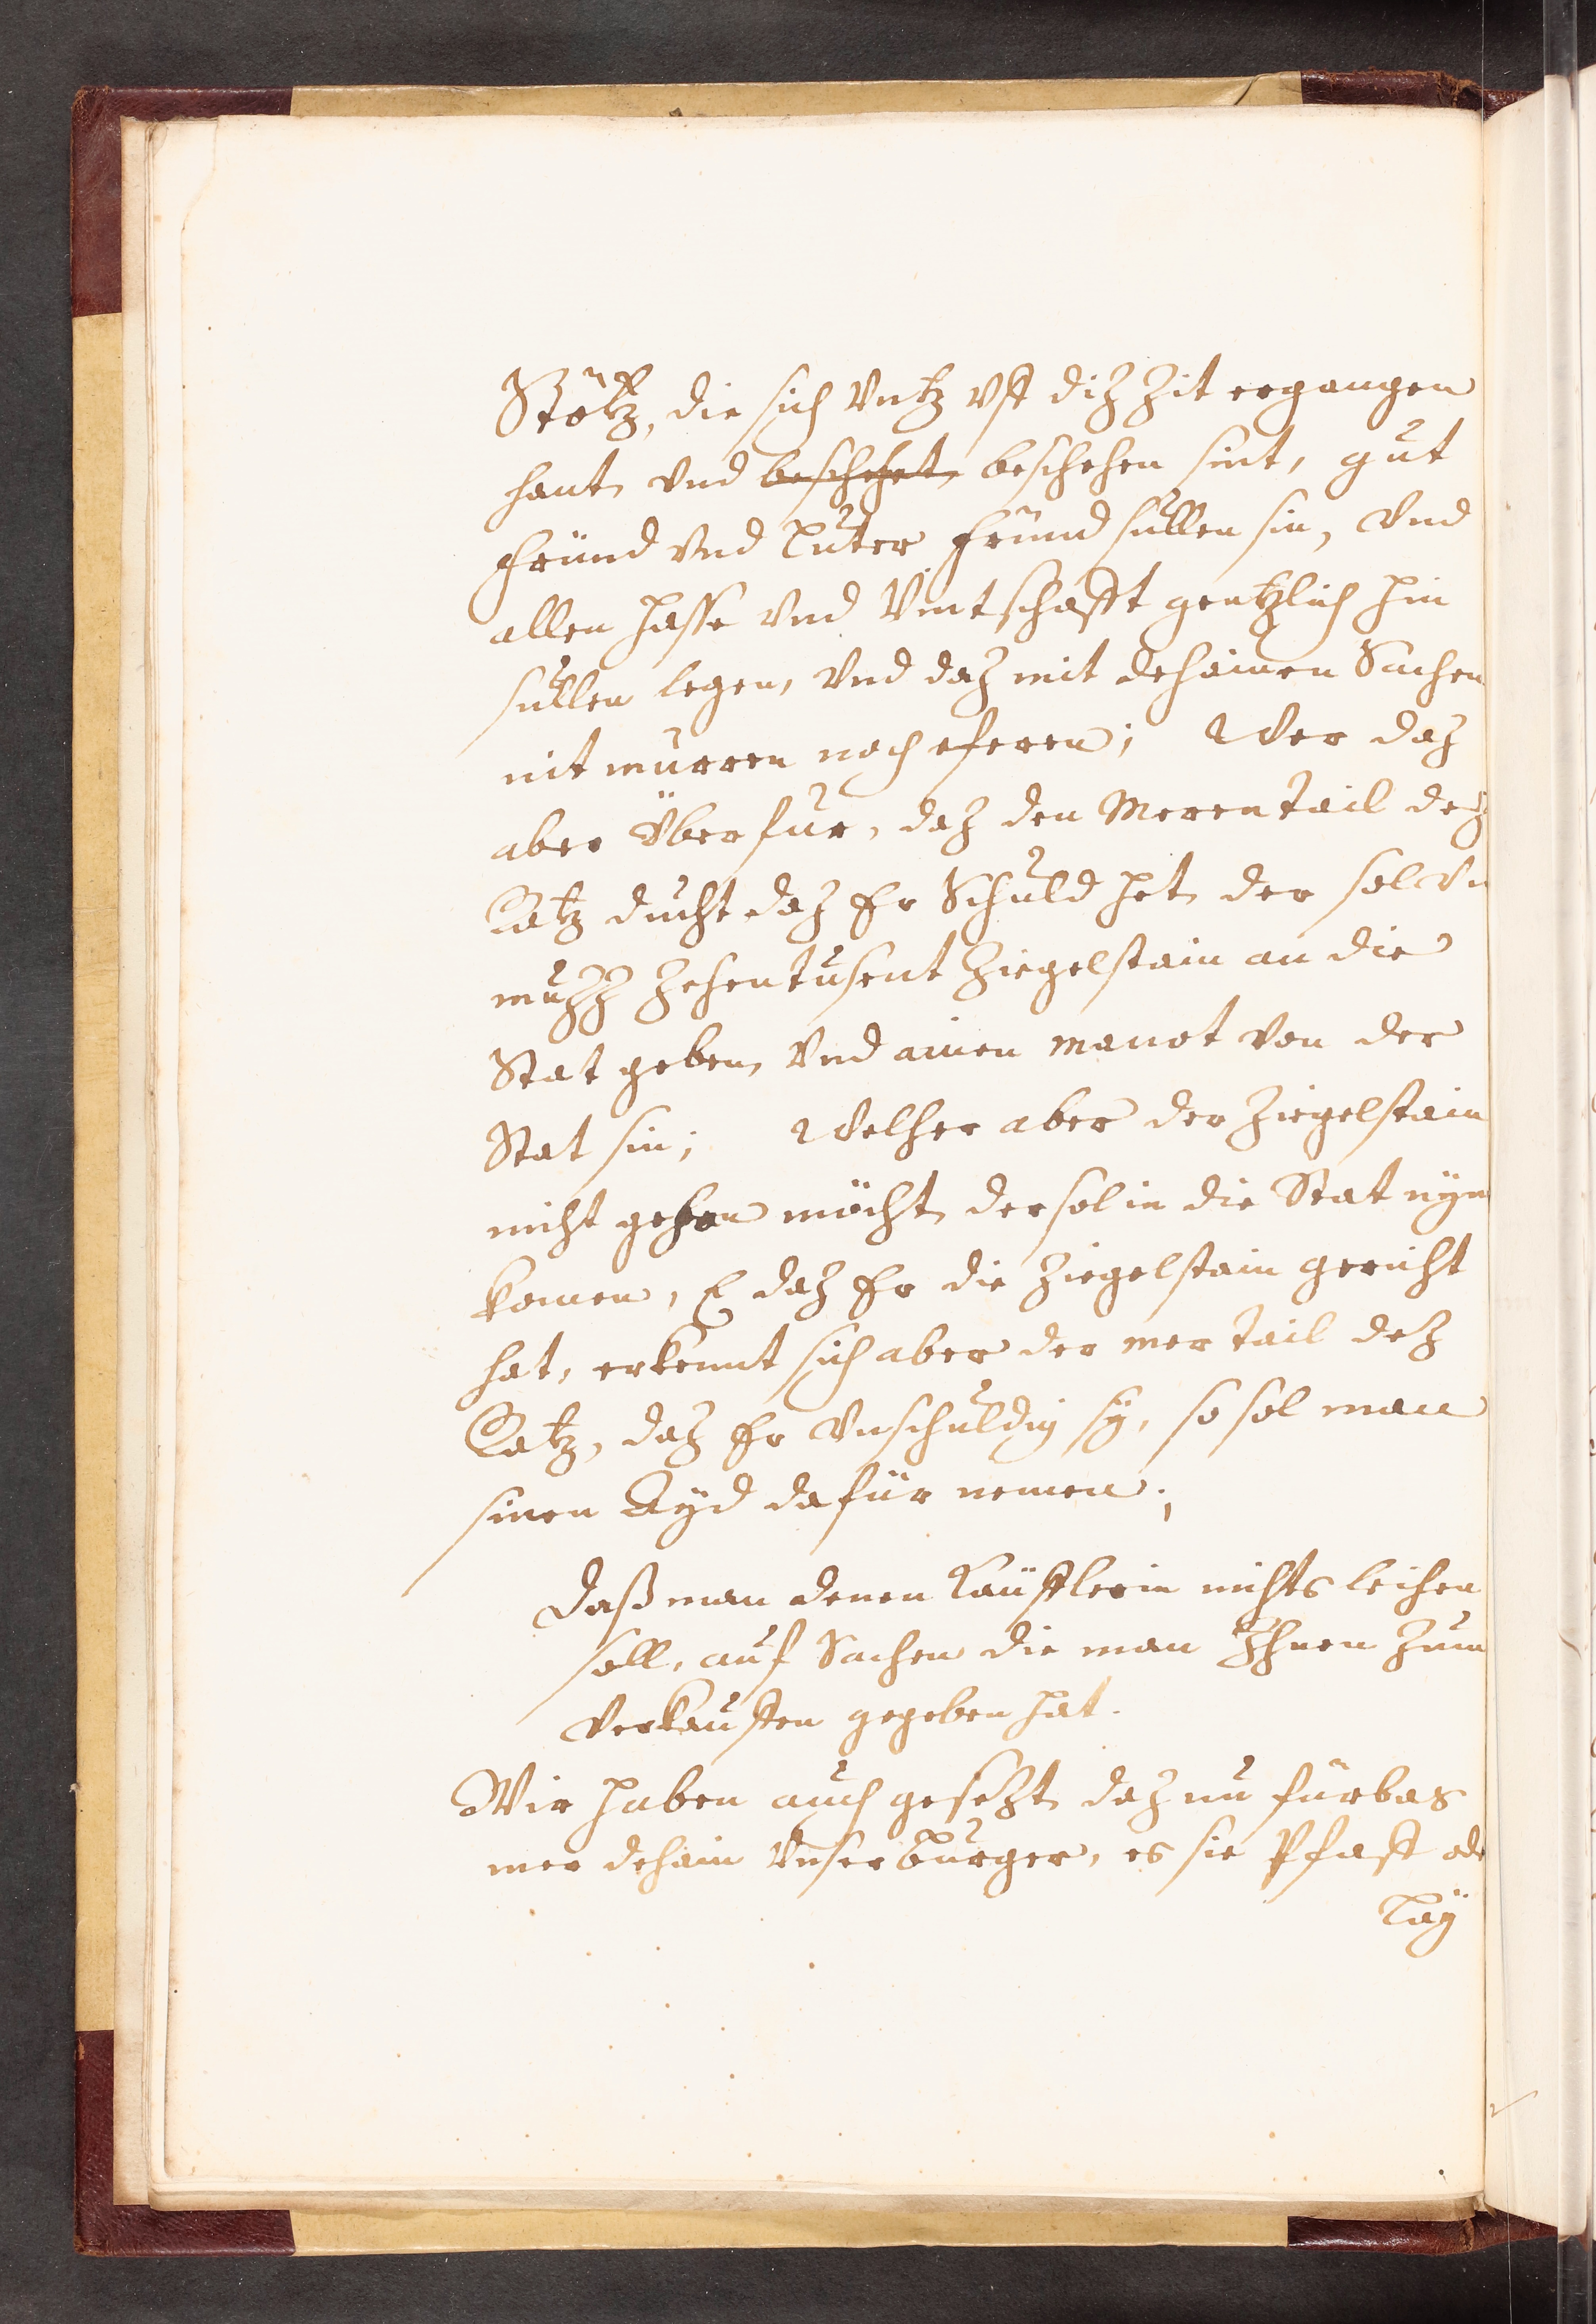 Stötz, die sich vntz vff diz Zit ergangen
hant, vnd beschehet, beschehen sint, gut
fründ vnd luter fründ süllen sin, vnd
allen Hasse vnd Vintschafft gentzlich hin
süllen legen, vnd daz mit dehainen Sachen
nit murren noch eferen; Wer daz
aber Überfür, daz den Merentail dez
Ratz ducht daz Er Schuld het, der sol vn
muzz Zehentusent Ziegelstain an die
Stat geben, vnd ainen manot von der
Stat sin; Welher aber der Ziegelstain
nicht geben möcht, der sol in die Stat nÿm
komen, E daz Er die Ziegelstain gericht
hat, erkennt sich aber der mer Tail dez
Ratz, daz Er vnschuldig sÿ, so sol man
sinen Aÿd dafür nemen;
Daß man denen Käufflerin nichts leihen
soll, auf Sachen die man Ihnen zum
verkauffen gegeben hat.
Wir haben auch gesetzt daz nu fürbas
mer dehain vnser burger, es sie Pfaff ode
Laÿ